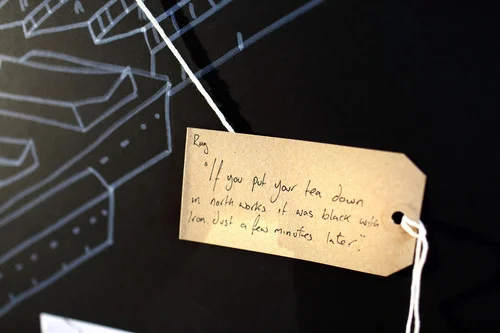 Ray
"If you put your tea down
in north works it was black with
Iron dust a few minutes later."